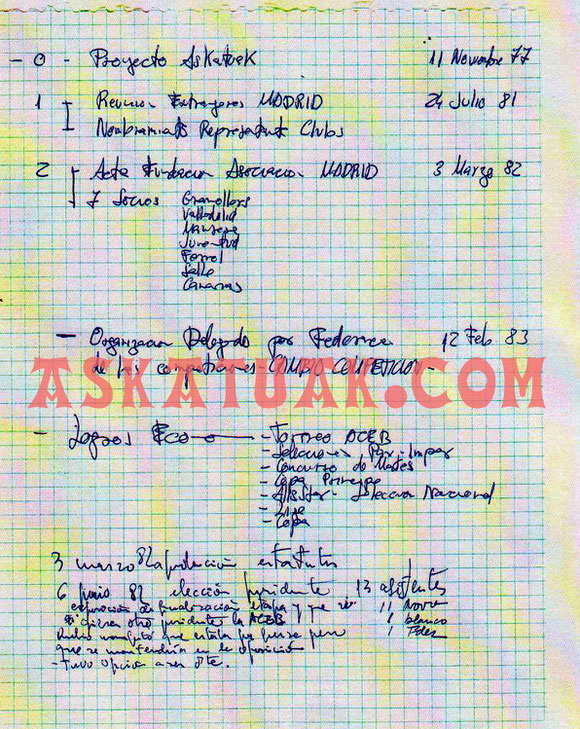 - 0 - Proyecto Askatuak 11 Novembre 77
1 Reunion Extranjeros MADRID 24 Julio 81
Nombramiento Representante Clubs
2 Acta Fundacion Asociacion MADRID 3 Marzo 82
7 Socios Granollers
Valladolid
Manresa
Juventud
Ferrol
Salle
Canarias
- Organizacion Delegado por Federacion 12 Feb 83
de las competiciones - CAMBIO COMPETICION -
ASKATUAK.COM
- Logros Eco - Torneo ACEB
- Selecciones Par - Impar
- Concurso de Mates
- Copa Principe
- All Star - Seleccion Nacional
- Liga
- Copa
3 marzo 82 aprobación estatutos
6 junio 82 elección presidente 13 asistentes
exposición de finalización etapa y que si 11 Novo
si quieren otro presidente la ACEB 1 blanco
manifestó que estaba por fuerza pero 1
que se mantendría en la oposición
- Tuvo opción a ser pte.